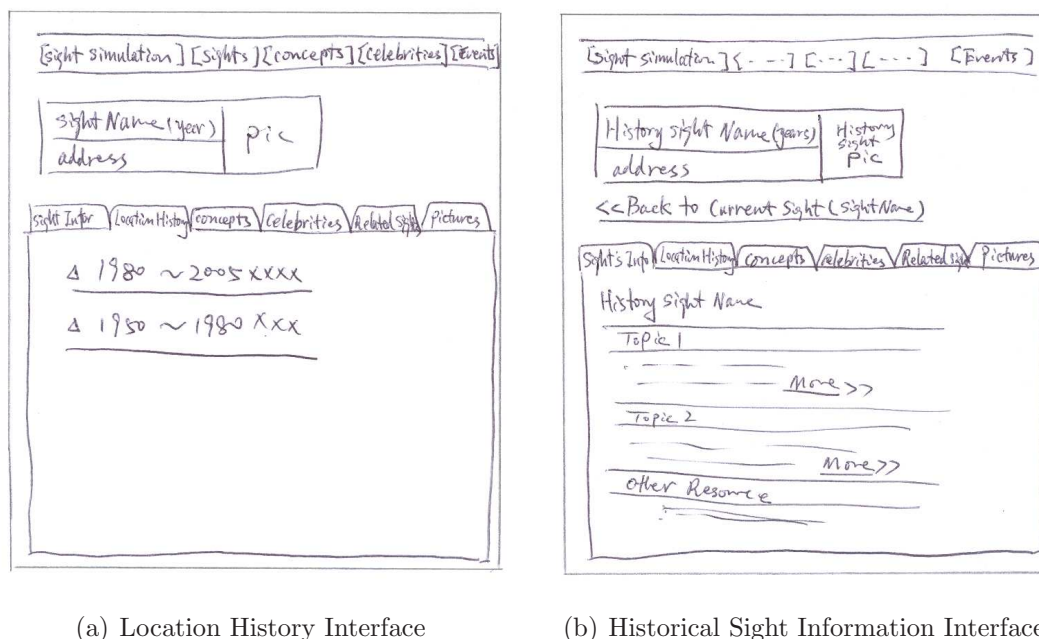 [sight simulation] [sights] [concepts] [celebrities] [Events]
sight Name (year)
pic
address
sight Infor
Location History
concepts
celebrities
Related Sight
Pictures
Δ 1980 ~ 2005 xxxx
Δ 1950 ~ 1980 xxx
(a) Location History Interface
[Sight simulation] [- - -] [...] [- - - -] [Events]
History sight Name (years)
History
sight
Pic
address
<<Back to Current Sight (Sight Name)
Sight's Info
Location History
concepts
celebrities
Related Sight
Pictures
History Sight Name
Topic 1
More >>
Topic 2
More >>
Other Resource
(b) Historical Sight Information Interface